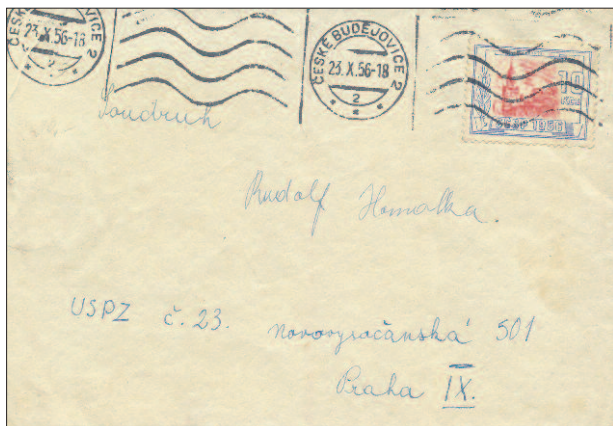 ČESKÉ BUDĚJOVICE 2
23.X.56-18
2
ČESKÉ BUDĚJOVICE 2
23.X.56-18
2
10
Soudruh
Rudolf Homolka.
USPZ č. 23. Novovysočanská 501
Praha IX.